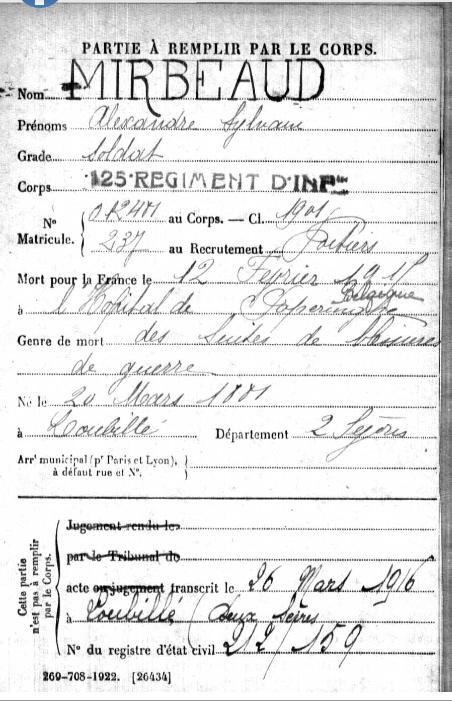 PARTIE À REMPLIR PAR LE CORPS.
Nom MIRBEAUD
Prénoms Alexandre Sylvain
Grade soldat
Corps 125 REGIMENT D'INFie
N° Matricule. { 01240 au Corps. — Cl. 1901
237 au Recrutement Poitiers
Mort pour la France le 12 Fevrier 1915
à l'Hopital de Poperinghe Belgique
Genre de mort des suites de blessures
de guerre
Né le 20 Mars 1881
à Loubillé Département 2 Sèvres
Arrt municipal (pr Paris et Lyon),
à défaut rue et N°.
Cette partie n'est pas à remplir par le Corps.
Jugement rendu le
par le Tribunal de
acte ou jugement transcrit le 26 Mars 1916
à Loubillé (Deux Sèvres
N° du registre d'état civil 212/159
269-708-1922. [26434]